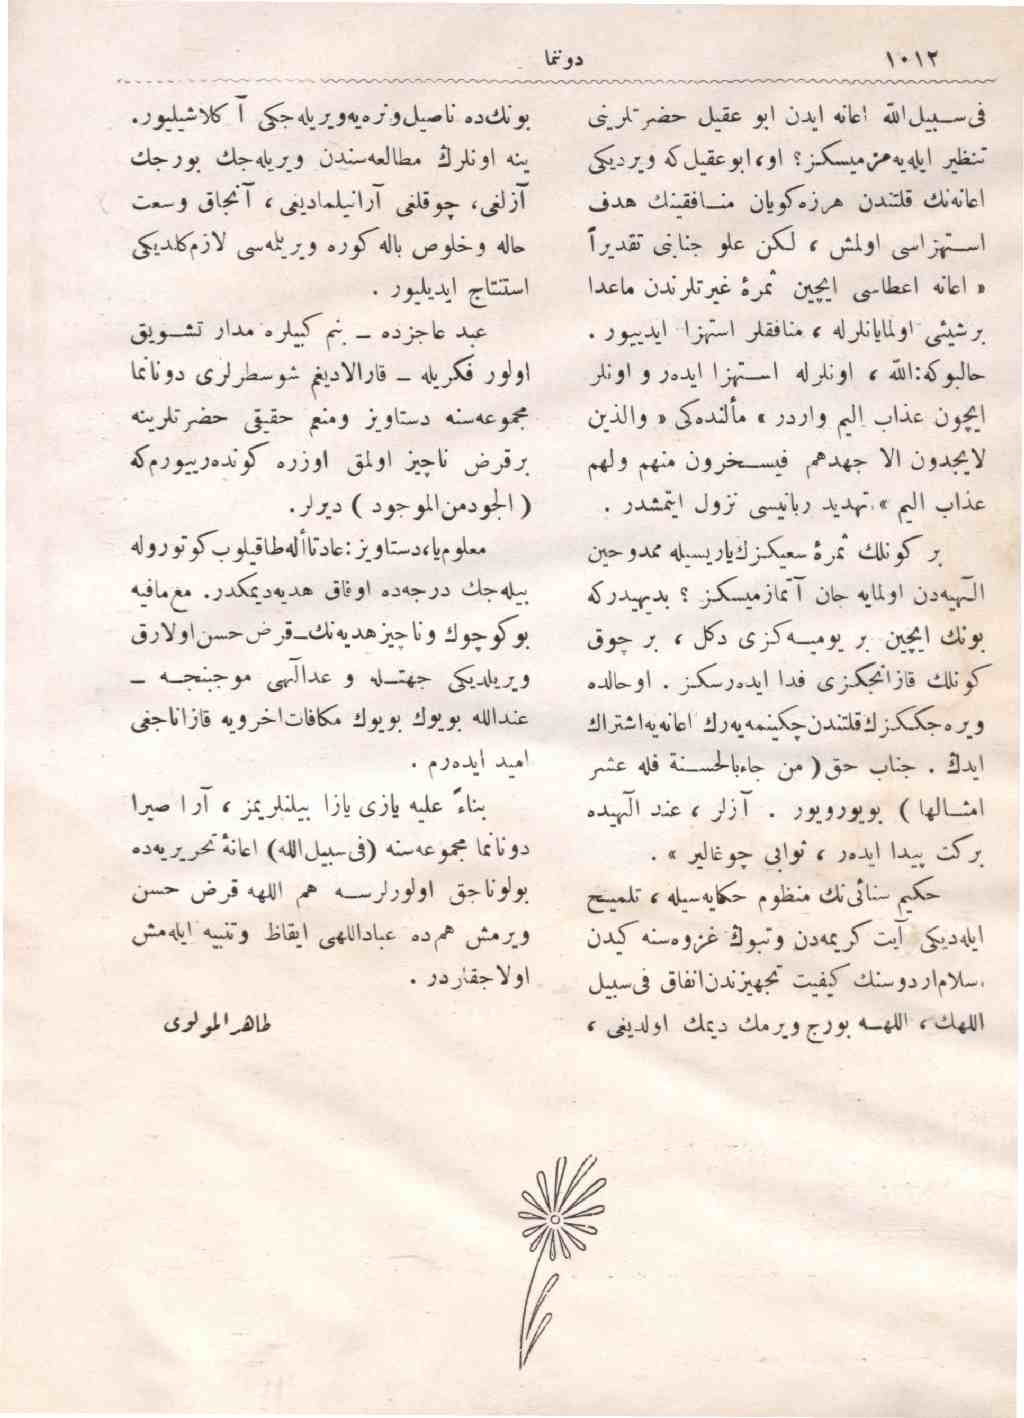 ١٠١٢
دوننما
فی‌سـبیل‌الله اعانه ایدن ابو عقیل حضرتلرینی
تنظیر ایله‌یه‌مزمیسکز؟ او، ابوعقیل‌که ویردیکی
اعانه‌نك قلتندن هرزه‌کویان منـافقینك هدف
اسـتهزاسی اولمش ، لکن علو جنابنی تقدیراً
« اعانه اعطاسی ایچین ثمرهٔ غیرتلرندن ماعدا
برشیئی اولمایانلرله ، منافقلر استهزا ایدییور .
حالبوکه:الله ، اونلرله اسـتهزا ایده‌ر و اونلر
ایچون عذاب الیم واردر » مألنده‌کی « والذین
لایجدون الا جهدهم فیسـخرون منهم ولهم
عذاب الیم » تهدید ربانیسی نزول ایتمشدر .
بر کونلك ثمرهٔ سعیکزك‌یاریسیله ممدوحین
الـهیه‌دن اولمایه جان آتمازمیسکز ؟ بدیهیدرکه
بونك ایچین بر یومیـه‌کزی دکل ، بر چوق
کونلك قازانجکزی فدا ایده‌رسکز . اوحالده
ویره‌جکـکزك‌قلتندن‌چکینمه‌یه‌رك اعانه‌یه‌اشتراك
ایدك . جناب حق( من جاءبالحسـنة فله عشر
امثـالها ) بویورویور . آزلر ، عند الهیده
برکت پیدا ایده‌ر ، ثوابی چوغالیر » .
حکیم سنائی‌نك منظوم حکایه‌سیله ، تلمیـح
ایله‌دیکی آیت کریمه‌دن وتبوك غزوه‌سنه کیدن
سلام‌اردوسنك کیفیت تجهیزندن‌انفاق فی‌سبیل
اللهك ، اللهـه بورج ویرمك دیمك اولدیغی ،
بونك‌ده ناصیل‌ونره‌یه‌ویریله‌جکی آ کلاشیلیور.
ینه اونلرك مطالعه‌سندن ویریله‌جك بورجك
آزلغی، چوقلغی آرانیلمادیغی ، آنجاق وسعت
حاله وخلوص باله کوره ویریلمه‌سی لازم‌کلدیکی
استنتاج ایدیلیور .
عبد عاجزده ـ بنم کبیلره مدار تشـویق
اولور فکریله ـ قارالادیغم شوسطرلری دوناتما
مجموعه‌سنه دستاویز ومنعم حقیقی حضرتلرینه
برقرض ناچیز اولمق اوزره کونده‌رییورم‌که
( الجودمن‌الموجود ) دیرلر.
معلوم‌یا،دستاویز:عادتاأله‌طاقیلوب‌کوتوروله
بیله‌جك درجه‌ده اوفاق هدیه‌دیمکدر. مع‌مافیه
بوکوچوك وناچیزهدیه‌نك‌ـ‌قرض‌حسن‌اولارق
ویریلدیکی جهتـله و عدالهی موجبنجـه ـ
عندالله بویوك بویوك مکافات‌اخرویه قازاناجغی
امید ایده‌رم .
بناءً علیه یازی یازا بیلنلریمز ، آرا صیرا
دوناتما مجموعه‌سنه (فی‌سبیل‌الله) اعانهٔ تحریریه‌ده
بولوناجق اولورلرسـه هم اللهه قرض حسن
ویرمش هم‌ده عباداللهی ایقاظ وتنبیه ایله‌مش
اولاجقلردر .
طاهرالمولوی